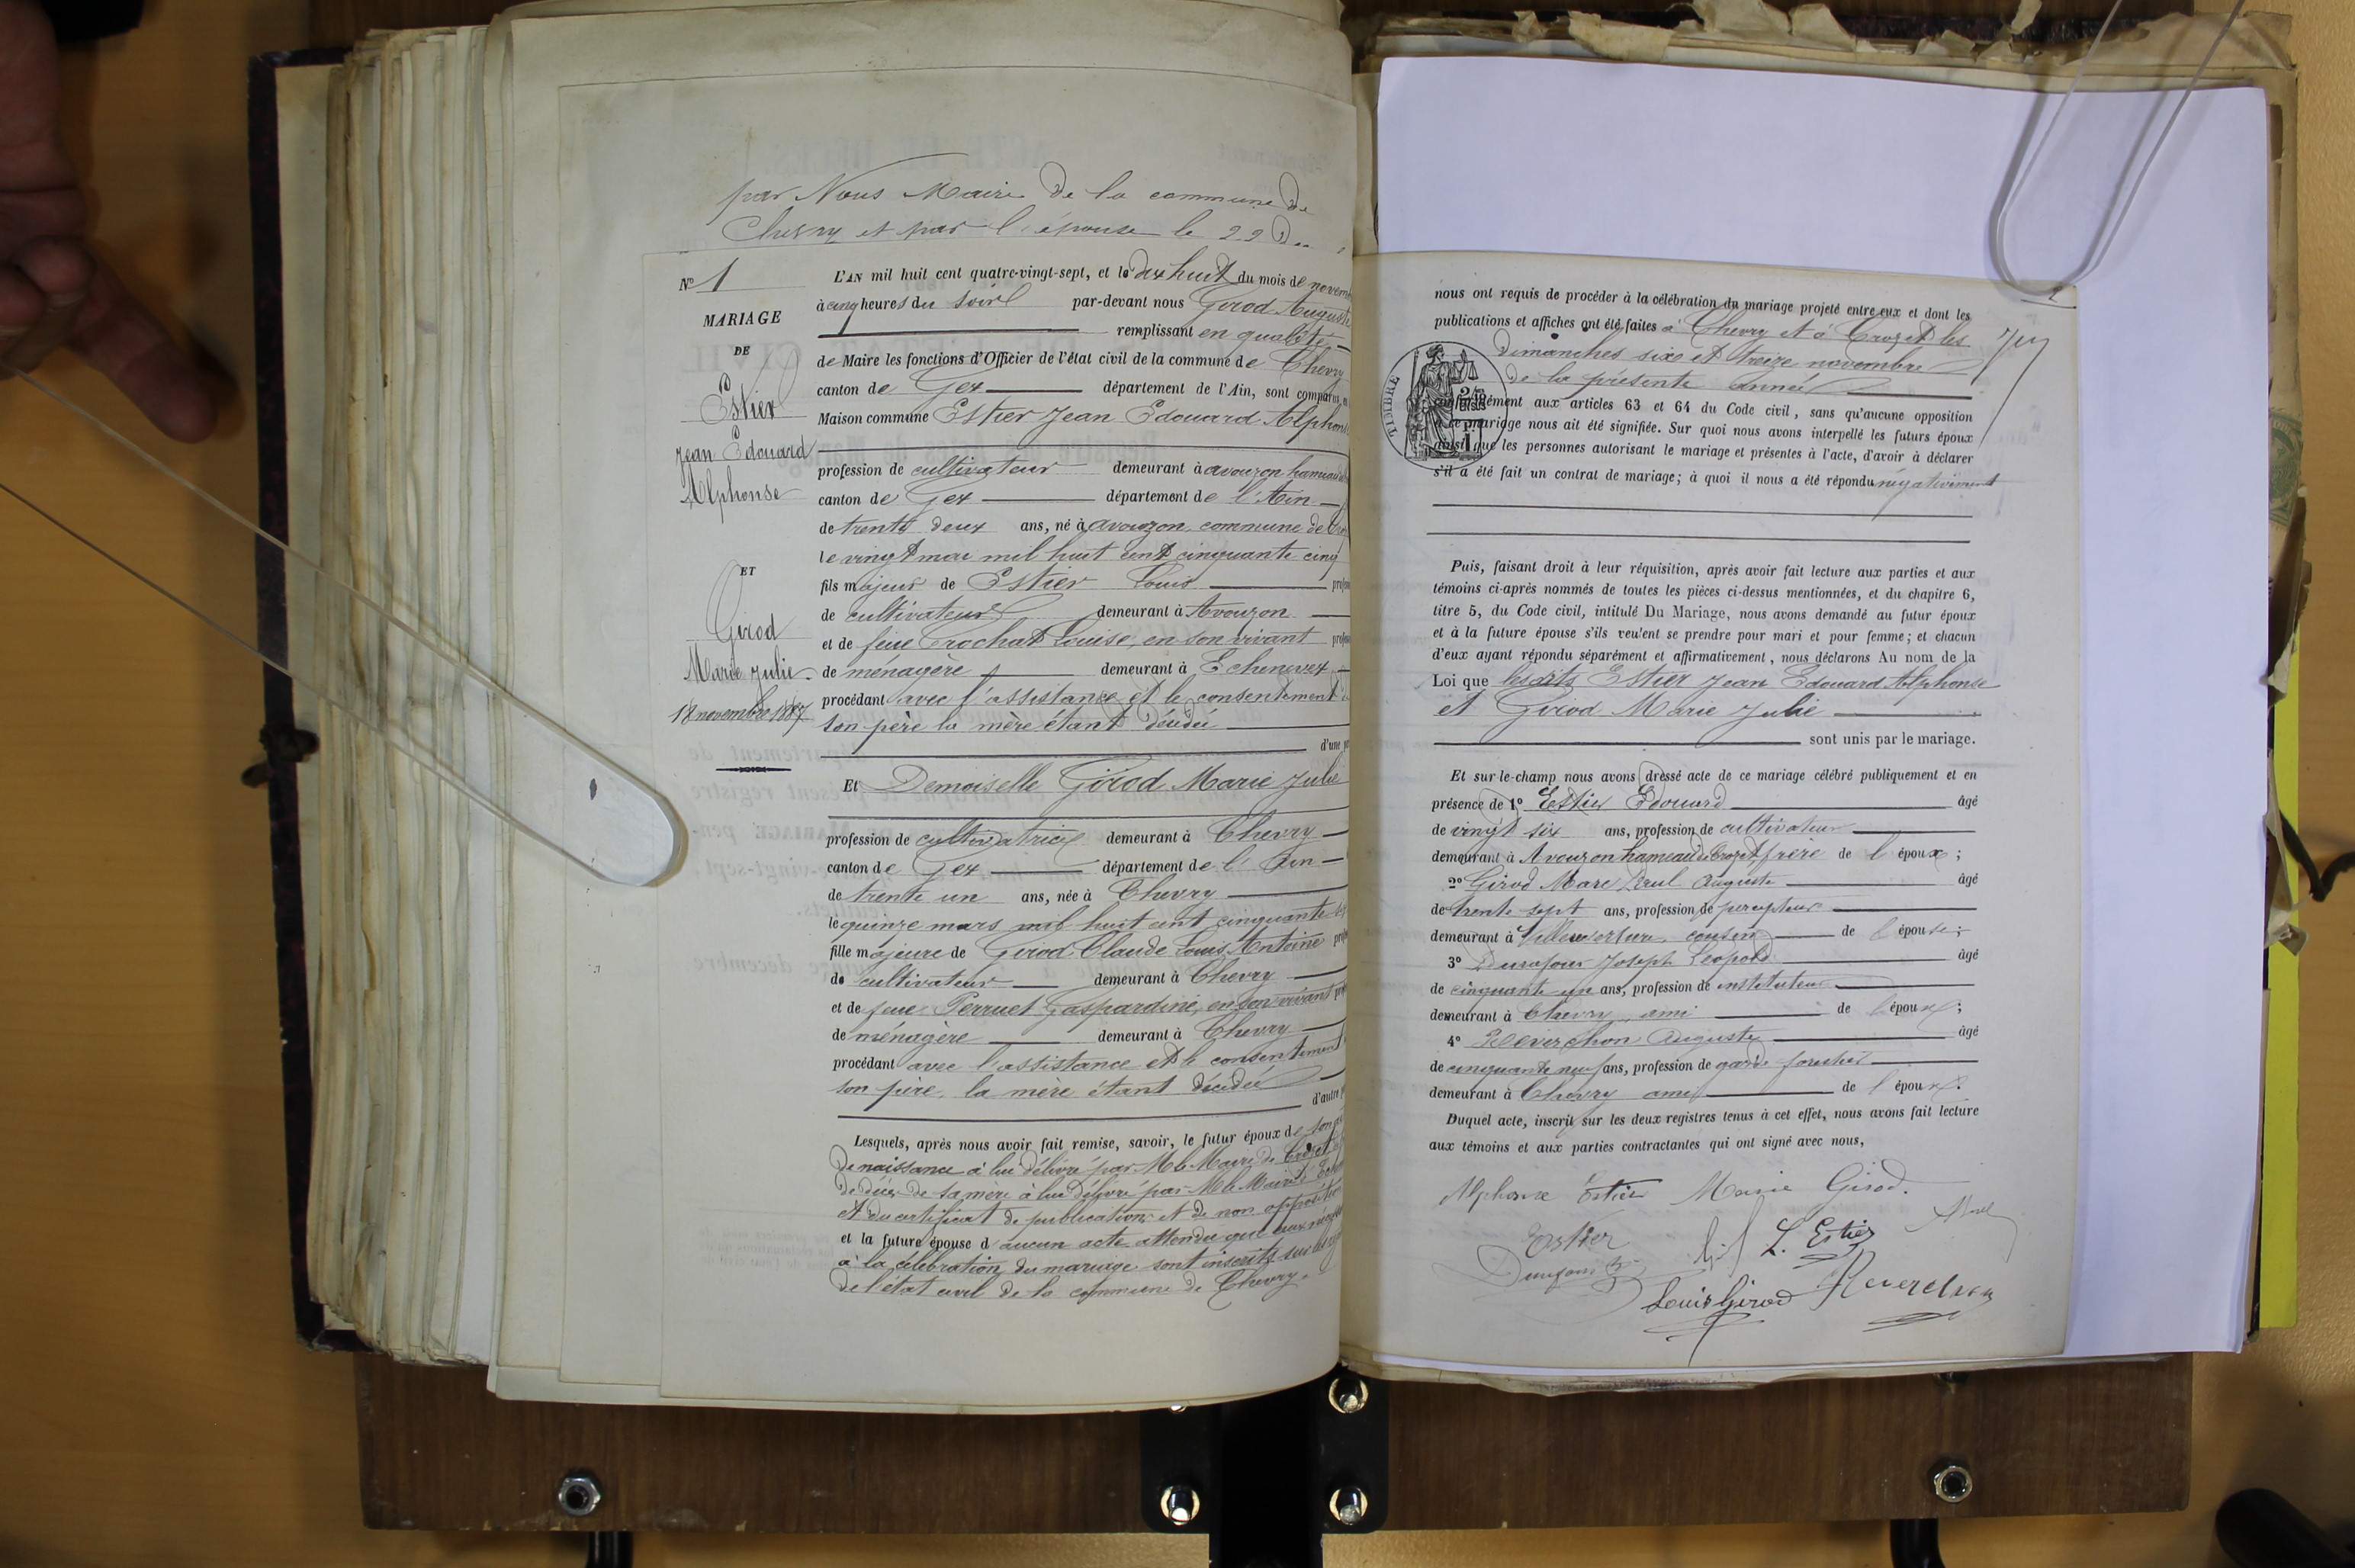 par Nous Maire de la commune de
Chevry et par l'épouse le 22 Du
N° 1
MARIAGE
DE
Estier
Jean Edouard
Alphonse
ET
Girod
Marie Julie
18 novembre 1887
L'AN mil huit cent quatre-vingt-sept, et le dix huit du mois de novem
à cinq heures du soir par-devant nous Girod Auguste
remplissant en qualité
de Maire les fonctions d'Officier de l'état civil de la commune de Chevry
canton de Gex département de l'Ain, sont comparus en
Maison commune Estier Jean Edouard Alphons
profession de cultivateur demeurant à avouzon hameau
canton de Gex département de l'Ain
de trente deux ans, né à avouzon commune de Cro
le vingt mai mil huit cent cinquante cinq
fils majeur de Estier Louis profes
de cultivateur demeurant à Avouzon
et de feue Crochat Louise, en son vivant profes
de ménagère demeurant à Echenevex
procédant avec l'assistance et le consentement
son père la mère étant décédée
d'une p
Et Demoiselle Girod Marie Julie
profession de cultivatrice demeurant à Chevry
canton de Gex département de l'Ain
de trente un ans, née à Chevry
le quinze mars mil huit cent cinquante
fille majeure de Girod Claude Louis Antoine prof
de cultivateur demeurant à Chevry
et de feue Perruet Gaspardine, en son vivant pro
de ménagère demeurant à Chevry
procédant avec l'assistance et le consentement
son père, la mère étant décédée
d'autre p
Lesquels, après nous avoir fait remise, savoir, le futur époux de son
De naissance à lui délivré par M le Maire de Crozet
De décès de sa mère à lui délivré par M le Maire
et du certificat de publications et de non opposition
et la future épouse d'aucun acte attendu que ceux
à la célébration du mariage sont inscrits sur les
de l'état civil de la commune de Chevry.
nous ont requis de procéder à la célébration du mariage projeté entre eux et dont les
publications et affiches ont été faites à Chevry et à Crozet les
dimanches six et treize novembre
de la présente année
TIMBRE
conformément aux articles 63 et 64 du Code civil, sans qu'aucune opposition
à ce mariage nous ait été signifiée. Sur quoi nous avons interpellé les futurs époux
ainsi que les personnes autorisant le mariage et présentes à l'acte, d'avoir à déclarer
s'il a été fait un contrat de mariage; à quoi il nous a été répondu négativement
Puis, faisant droit à leur réquisition, après avoir fait lecture aux parties et aux
témoins ci-après nommés de toutes les pièces ci-dessus mentionnées, et du chapitre 6,
titre 5, du Code civil, intitulé Du Mariage, nous avons demandé au futur époux
et à la future épouse s'ils veulent se prendre pour mari et pour femme; et chacun
d'eux ayant répondu séparément et affirmativement, nous déclarons Au nom de la
Loi que lesdits Estier Jean Edouard Alphonse
et Girod Marie Julie
sont unis par le mariage.
Et sur-le-champ nous avons dressé acte de ce mariage célébré publiquement et en
présence de 1° Estier Edouard âgé
de vingt six ans, profession de cultivateur
demeurant à Avouzon hameau de Crozet, frère de l'époux;
2° Girod Marc Paul Auguste âgé
de trente sept ans, profession de percepteur
demeurant à Villeversure, cousin de l'épouse;
3° Dunoyer Joseph Léopold âgé
de cinquante un ans, profession de instituteur
demeurant à Chevry, ami de l'époux;
4° Reverchon Auguste âgé
de cinquante neuf ans, profession de garde forestier
demeurant à Chevry ami de l'époux.
Duquel acte, inscrit sur les deux registres tenus à cet effet, nous avons fait lecture
aux témoins et aux parties contractantes qui ont signé avec nous,
Alphonse Estier Marie Girod.
Estier L. Estier
Louis Girod Reverchon